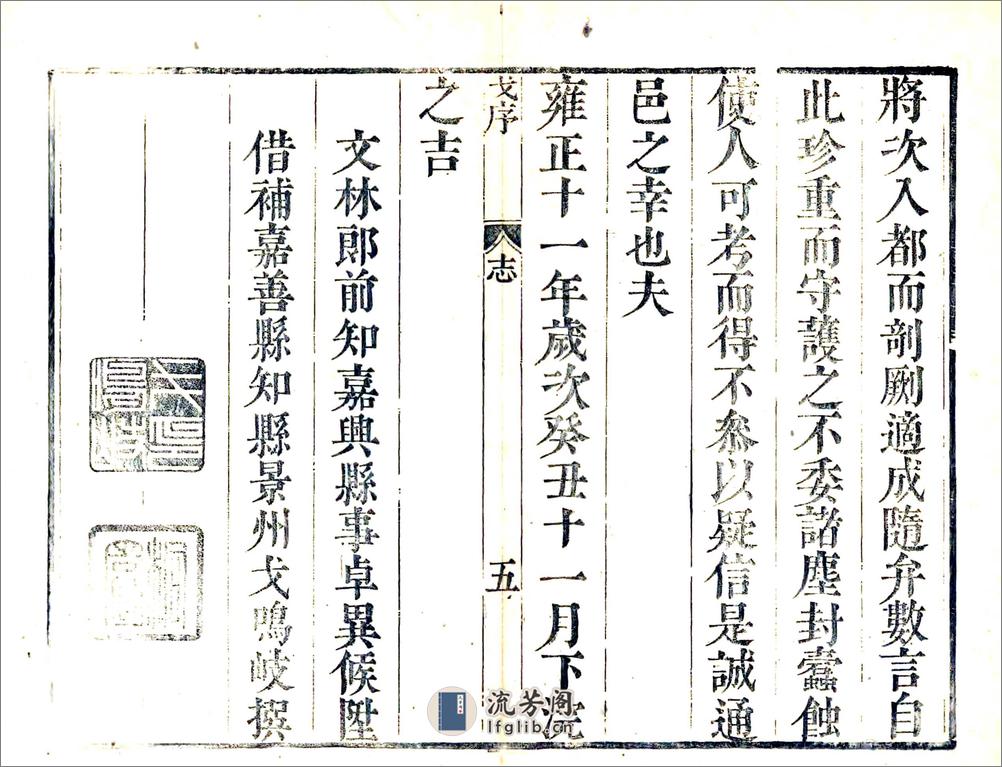 將次入都而剞劂適成隨弁數言自
此珍重而守護之不委諸塵封蠹蝕
使人可考而得不參以疑信是誠通
邑之幸也夫
雍正十一年歲次癸丑十一月下浣
戈序
志
五
之吉
文林郎前知嘉興縣事卓異候陞
借補嘉善縣知縣景州戈鳴岐撰
流芳阁
lfglib.com